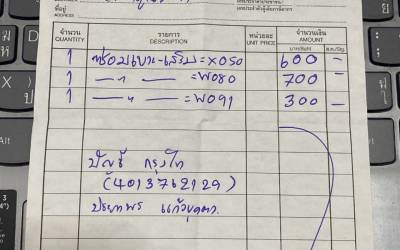 ที่อยู่
ADDRESS
จำนวน รายการ หน่วยละ จำนวนเงิน
QUANTITY DESCRIPTION UNIT PRICE AMOUNT
1 ซ่อมเบาะ-เสริม = X050 600 -
1 — " — = W080 700 -
1 — " — = W091 300 -
บัญชี กรุงไท
(4013762129)
ประยาพร แก้ว